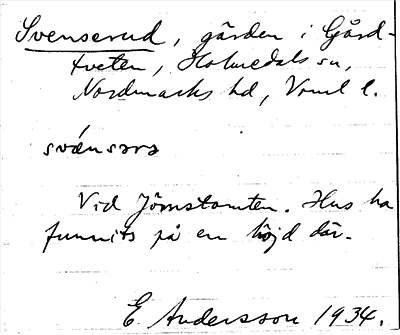 Svenserud, gården i Gård-
tveten, Holmedals sn,
Nordmarks hd, Vrml l.
svǽnsərə
Vid Jõmstomten. Hus ha
funnits på en höjd där.
E. Andersson 1934.